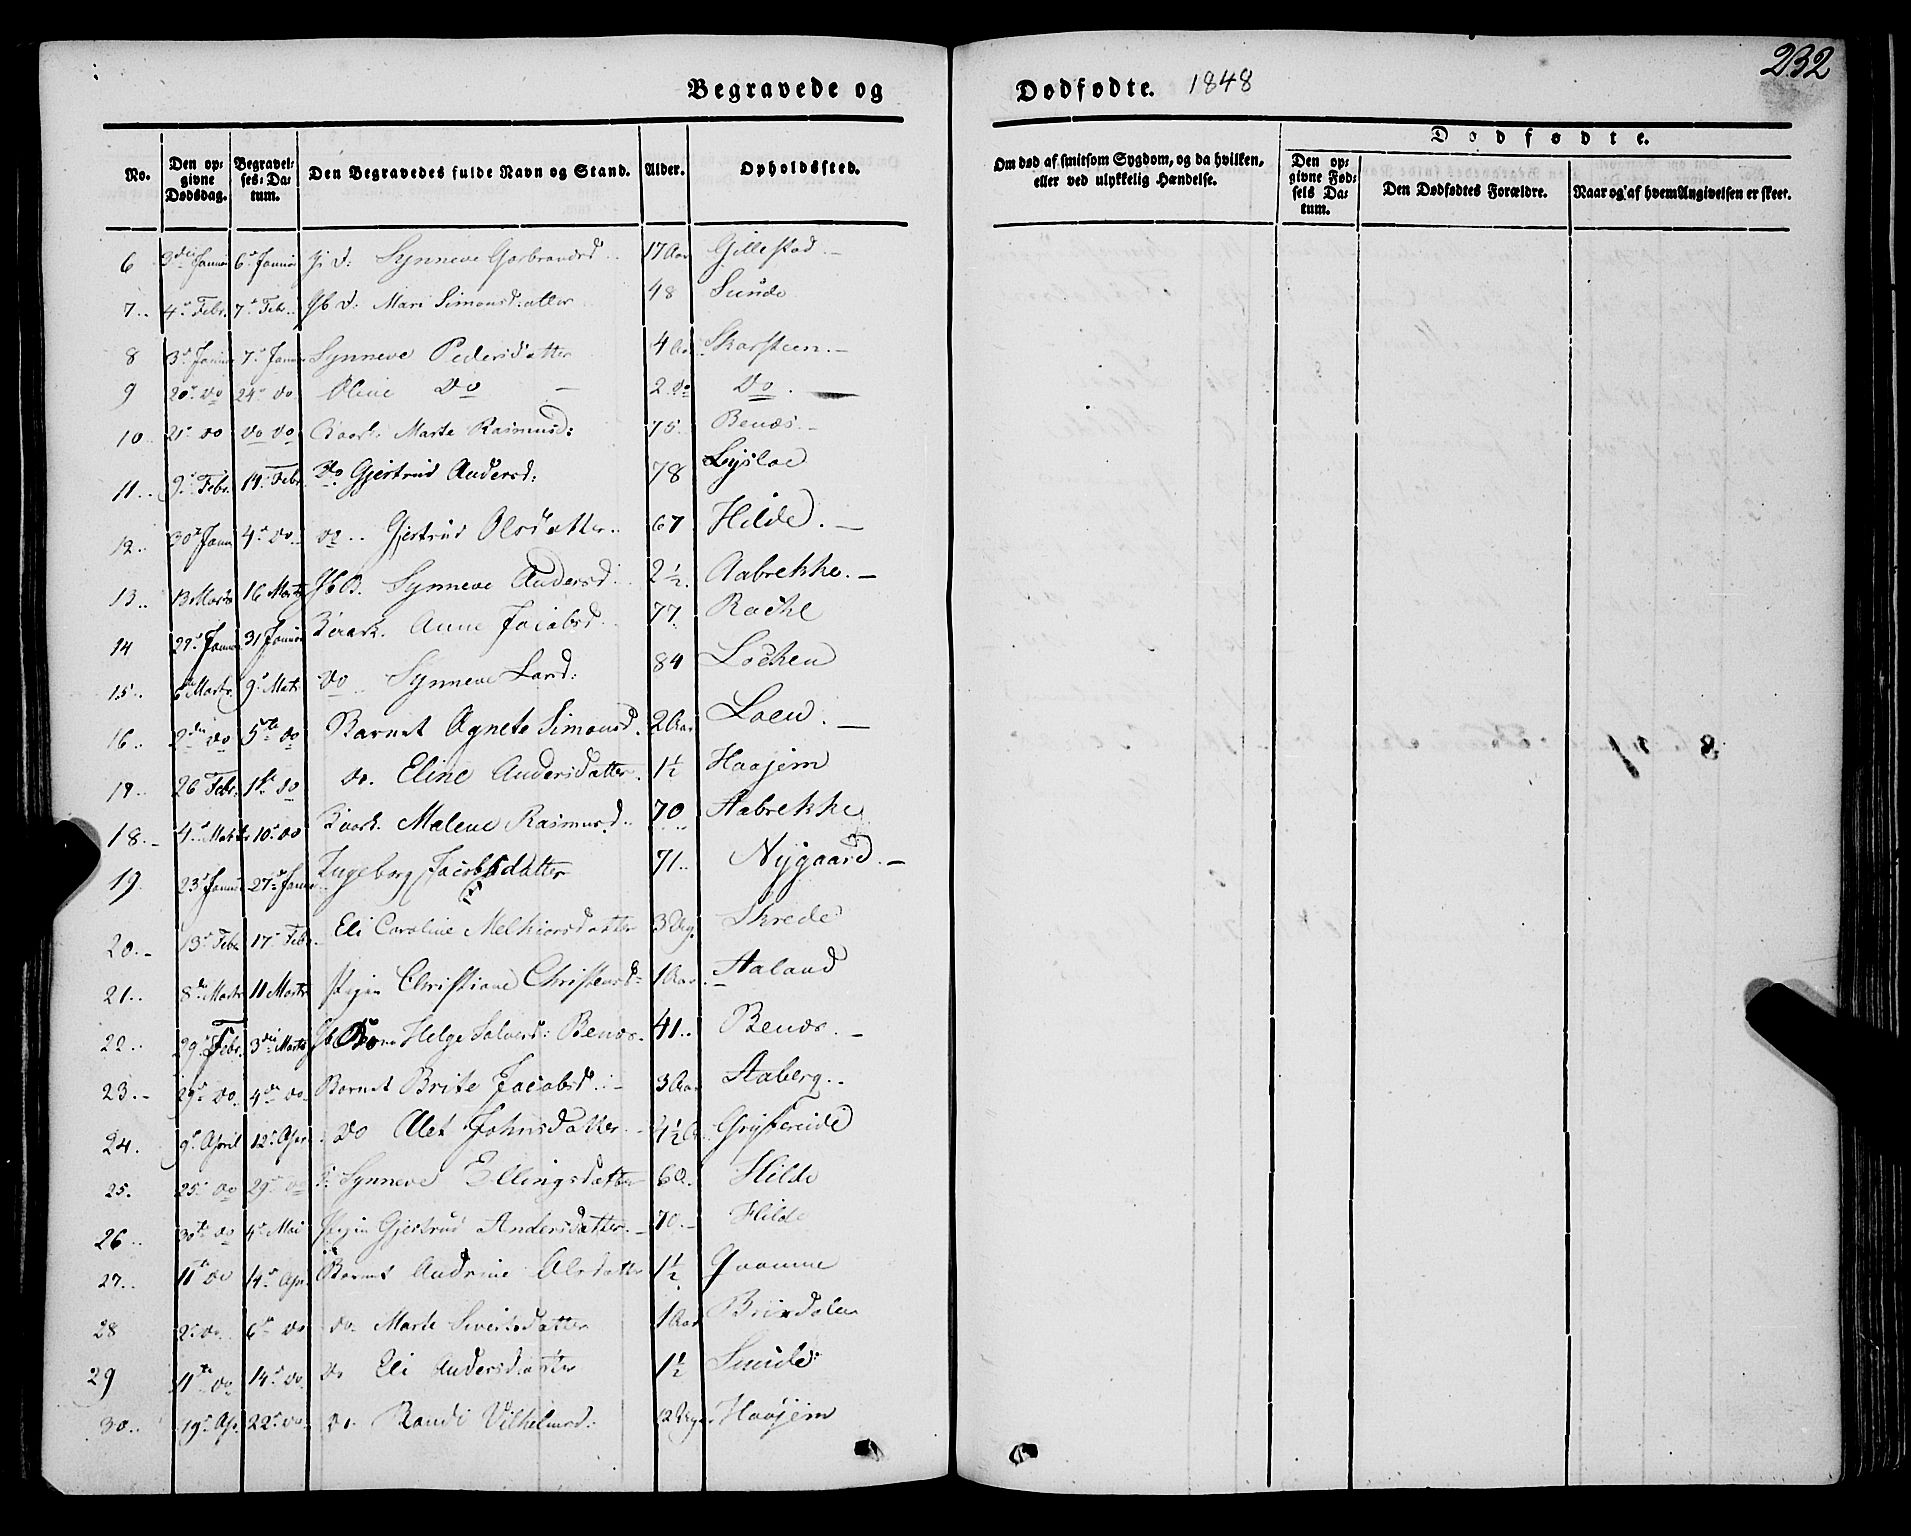 232
Begravede og Dødfødte. 1848
No. Den opgivne Dødsdag. Begravelses-Datum. Den Begravedes fulde Navn og Stand. Alder. Opholdssted. Om død af smitsom Sygdom, og da hvilken, eller ved ulykkelig Hændelse. Dødfødte. Den opgivne Fødsels Datum. Den Dødfødtes Forældre. Naar og af hvem Angivelsen er skeet.
6 3die Januar 6te Januar Synneve Garbrandsd. 17 Aar Gillestad
7 4de Febr. 7de Febr. Mari Simonsdatter 48 Sunde
8 3die Januar 7de Januar Synneve Pedersdatter 4 Skarsteen
9 20de do 24de do Oline Do 2 do Do
10 21de do do do Marte Rasmusd: 75 Benæs
11 9de Febr. 14de Febr. Do Gjertrud Andersd: 78 Lysloe
12 30te Janu 4de do do Gjertrud Olsdatter 67 Hilde
13 13 Marts 16 Marts Synneve Andersd. 2½ Aabrekke
14 29de Janu 31 Januar Anne Jacobsd. 77 Rache
15 6te Marts 9de Marts do Synneve Larsd: 84 Lochen
16 2den do 5te do Barnet Agnete Simonsd. 2 Aar Loen
19 26 Febr. 1ste do do. Eline Andersdatter 1½ Haajem
18 4de Marts 10de do Malene Rasmusd. 70 Aabrekke
19 23de Januar 27de Januar Ingeborg Jacobsdatter 71 Nygaard
20 13de Febr. 17de Febr. Eli Caroline Melkiorsdatter 3 Dg. Skrede
21 8de Marts 11 Marts Pigen Christiane Christensd. 1 Aar Aaland
22 29de Febr. 3die Marts Helge Salvers: Benæs 41 Benæs
23 29de do 4de do Barnet Brite Jacobsd. 3 Aar Aaberg
24 9de April 12te Apr. do Alet Johnsdatter 4½ Grytereide
25 25de do 29de do Synneve Ellingsdatter 60 Hilde
26 30te do 4de Mai Pigen Gjertrud Andersdatter 70 Hilde
27 11te do 14de Apr. Barnet Andrine Olsdatter 1½ Qvamme
28 2de do 6te do do Marte Sivertsdatter 1 Aar Brixdalen
29 11te do 14de do do Eli Andersdatter 1½ Sunde
30 19de Apr. 22de do do. Randi Vilhelmsd: 12 Dg. Haajem